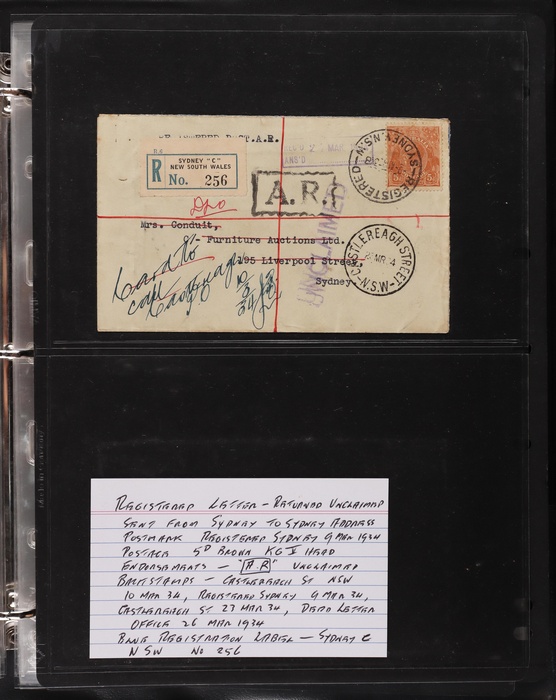 REGISTERED POST.A.R.
R.6
SYDNEY "C"
NEW SOUTH WALES
R No. 256
A.R.
UNCLAIMED
REGISTERED SYDNEY. N.S.W.
CASTLEREAGH STREET
N.S.W
DLO
Mrs. Conduit,
Furniture Auctions Ltd.
195 Liverpool Street,
Sydney
Card to
call
REGISTERED LETTER - RETURNED UNCLAIMED
SENT FROM SYDNEY TO SYDNEY ADDRESS
POSTMARK REGISTERED SYDNEY 9 MAR 1934
POSTAGE 5D BROWN KG V HEAD
ENDORSEMENTS - "A.R" UNCLAIMED
BACKSTAMPS - CASTLEREAGH ST NSW
10 MAR 34, REGISTERED SYDNEY 9 MAR 34,
CASTLEREAGH ST 27 MAR 34, DEAD LETTER
OFFICE 26 MAR 1934
BLUE REGISTRATION LABEL - SYDNEY C
NSW No 256